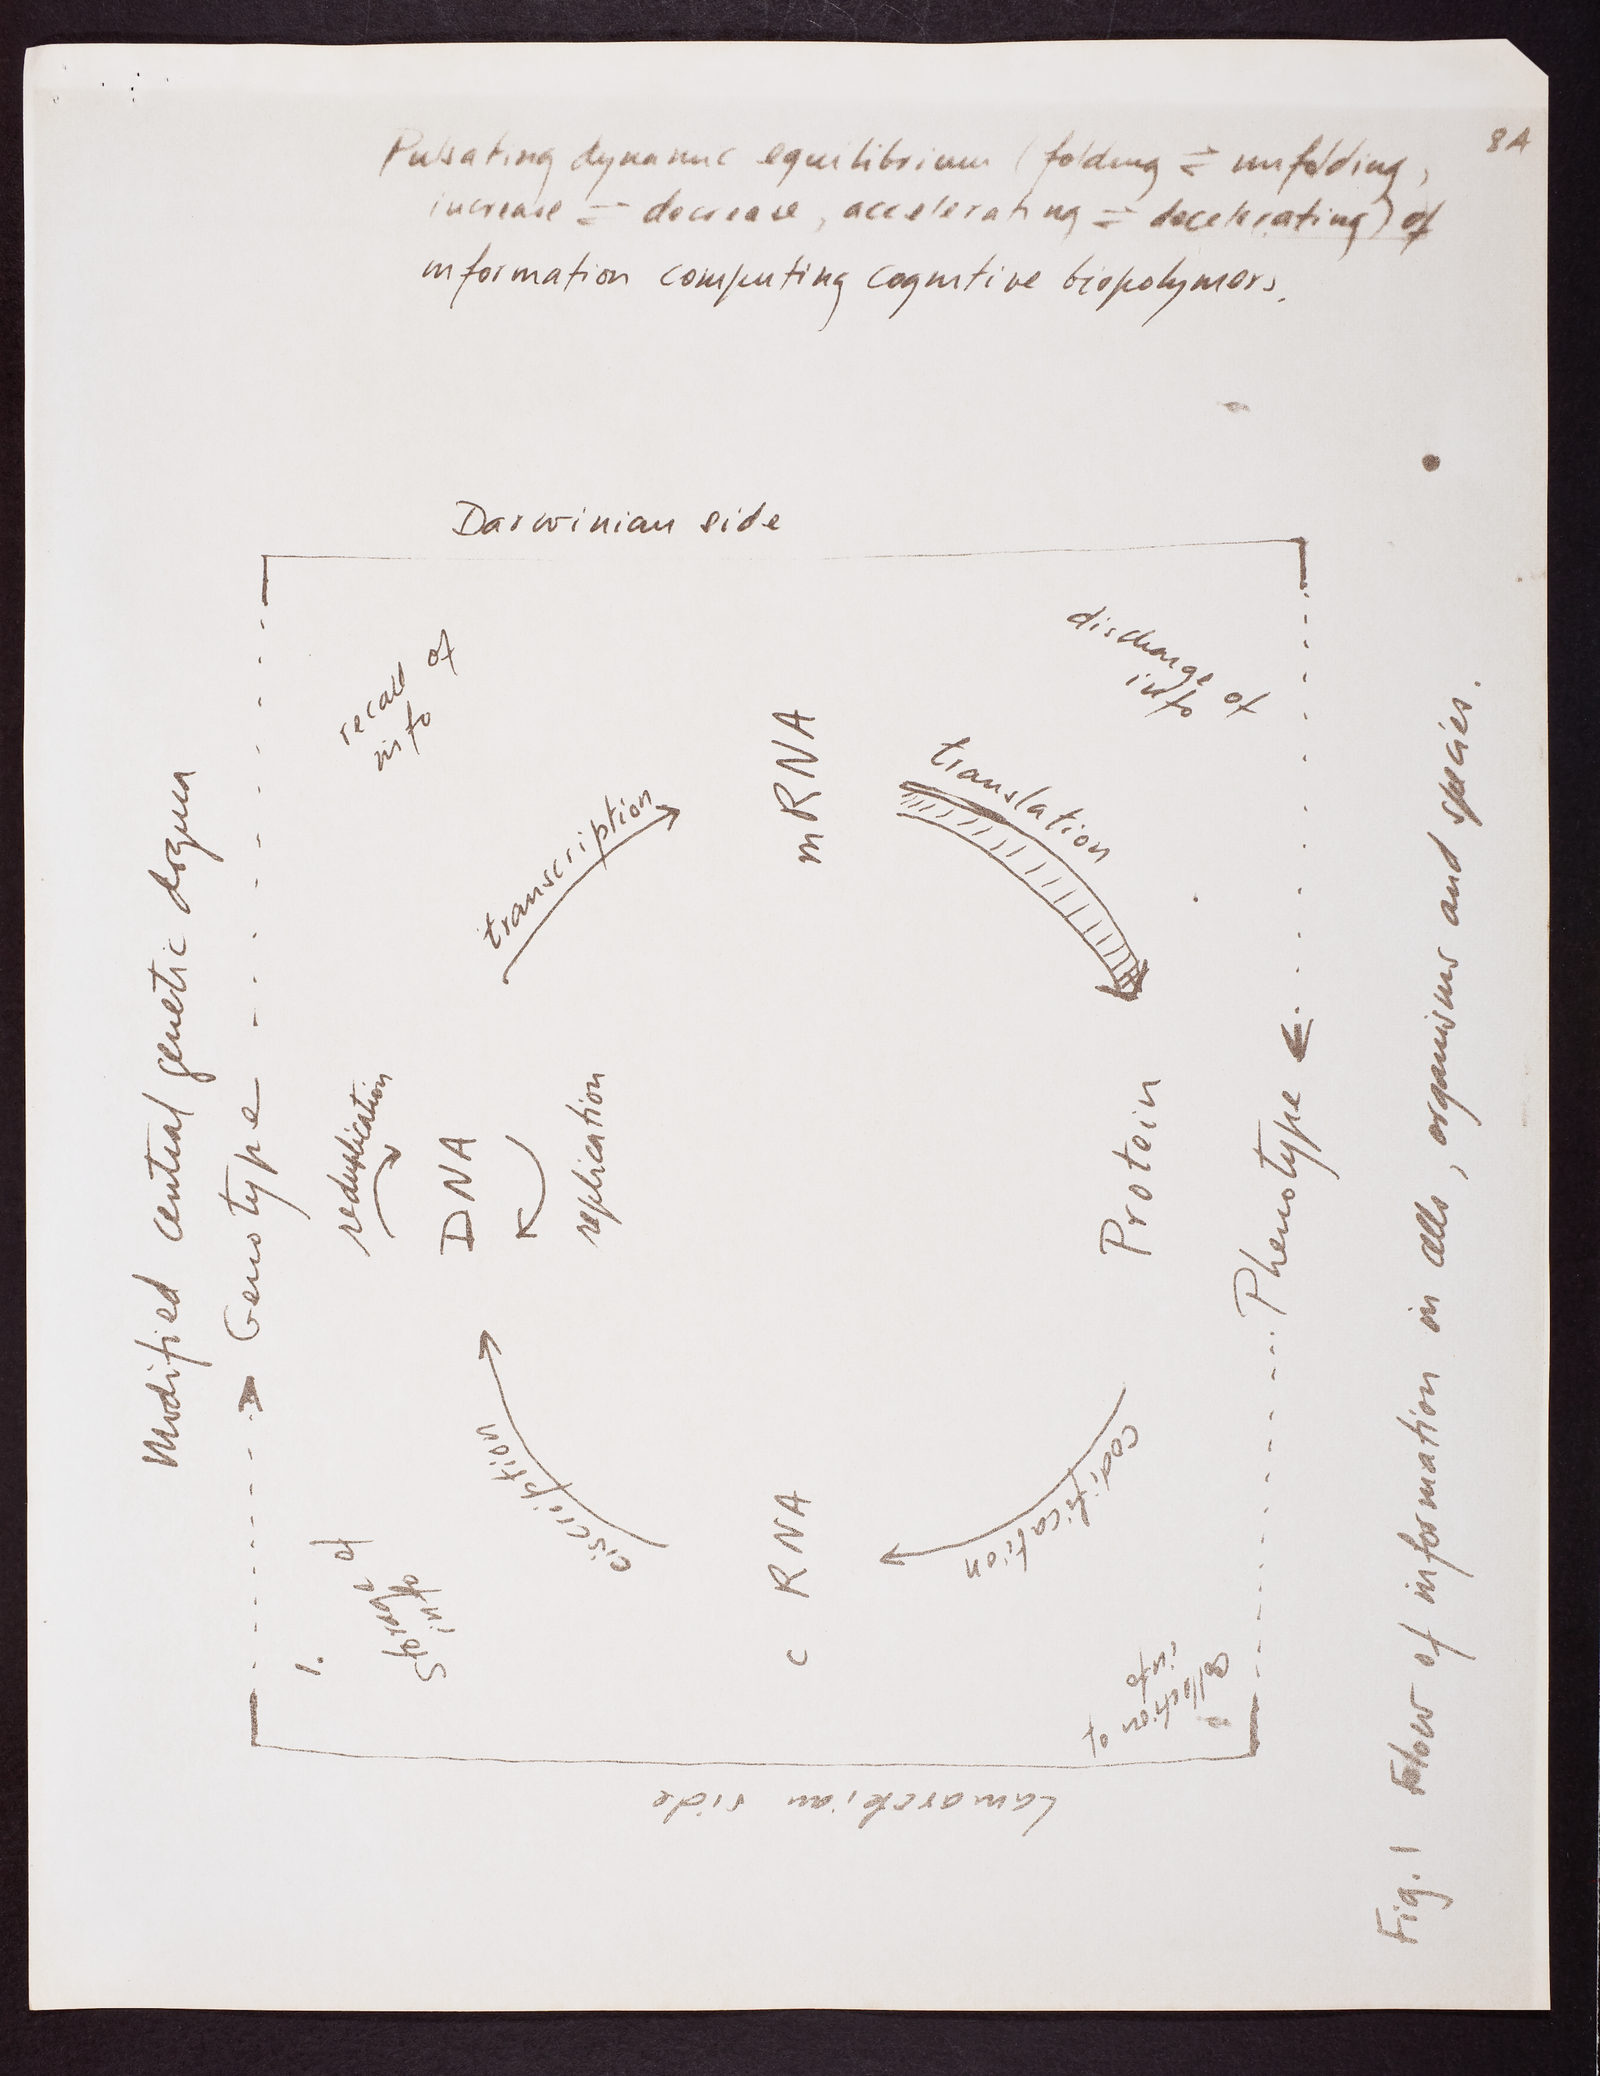 8A
Pulsating dynamic equilibrium (folding ⇌ unfolding,
increase ⇌ decrease, accelerating ⇌ decelerating) of
information computing cognitive biopolymers.
Darwinian side
recall of
info
discharge of
info
transcription
mRNA
translation
Modified central genetic dogma
Genotype
reduplication
DNA
replication
Protein
Phenotype
ciscription
c RNA
codification
1.
Storage of
info
Collection of
info
Lamarckian side
Fig. 1 Flow of information in cells, organisms and species.